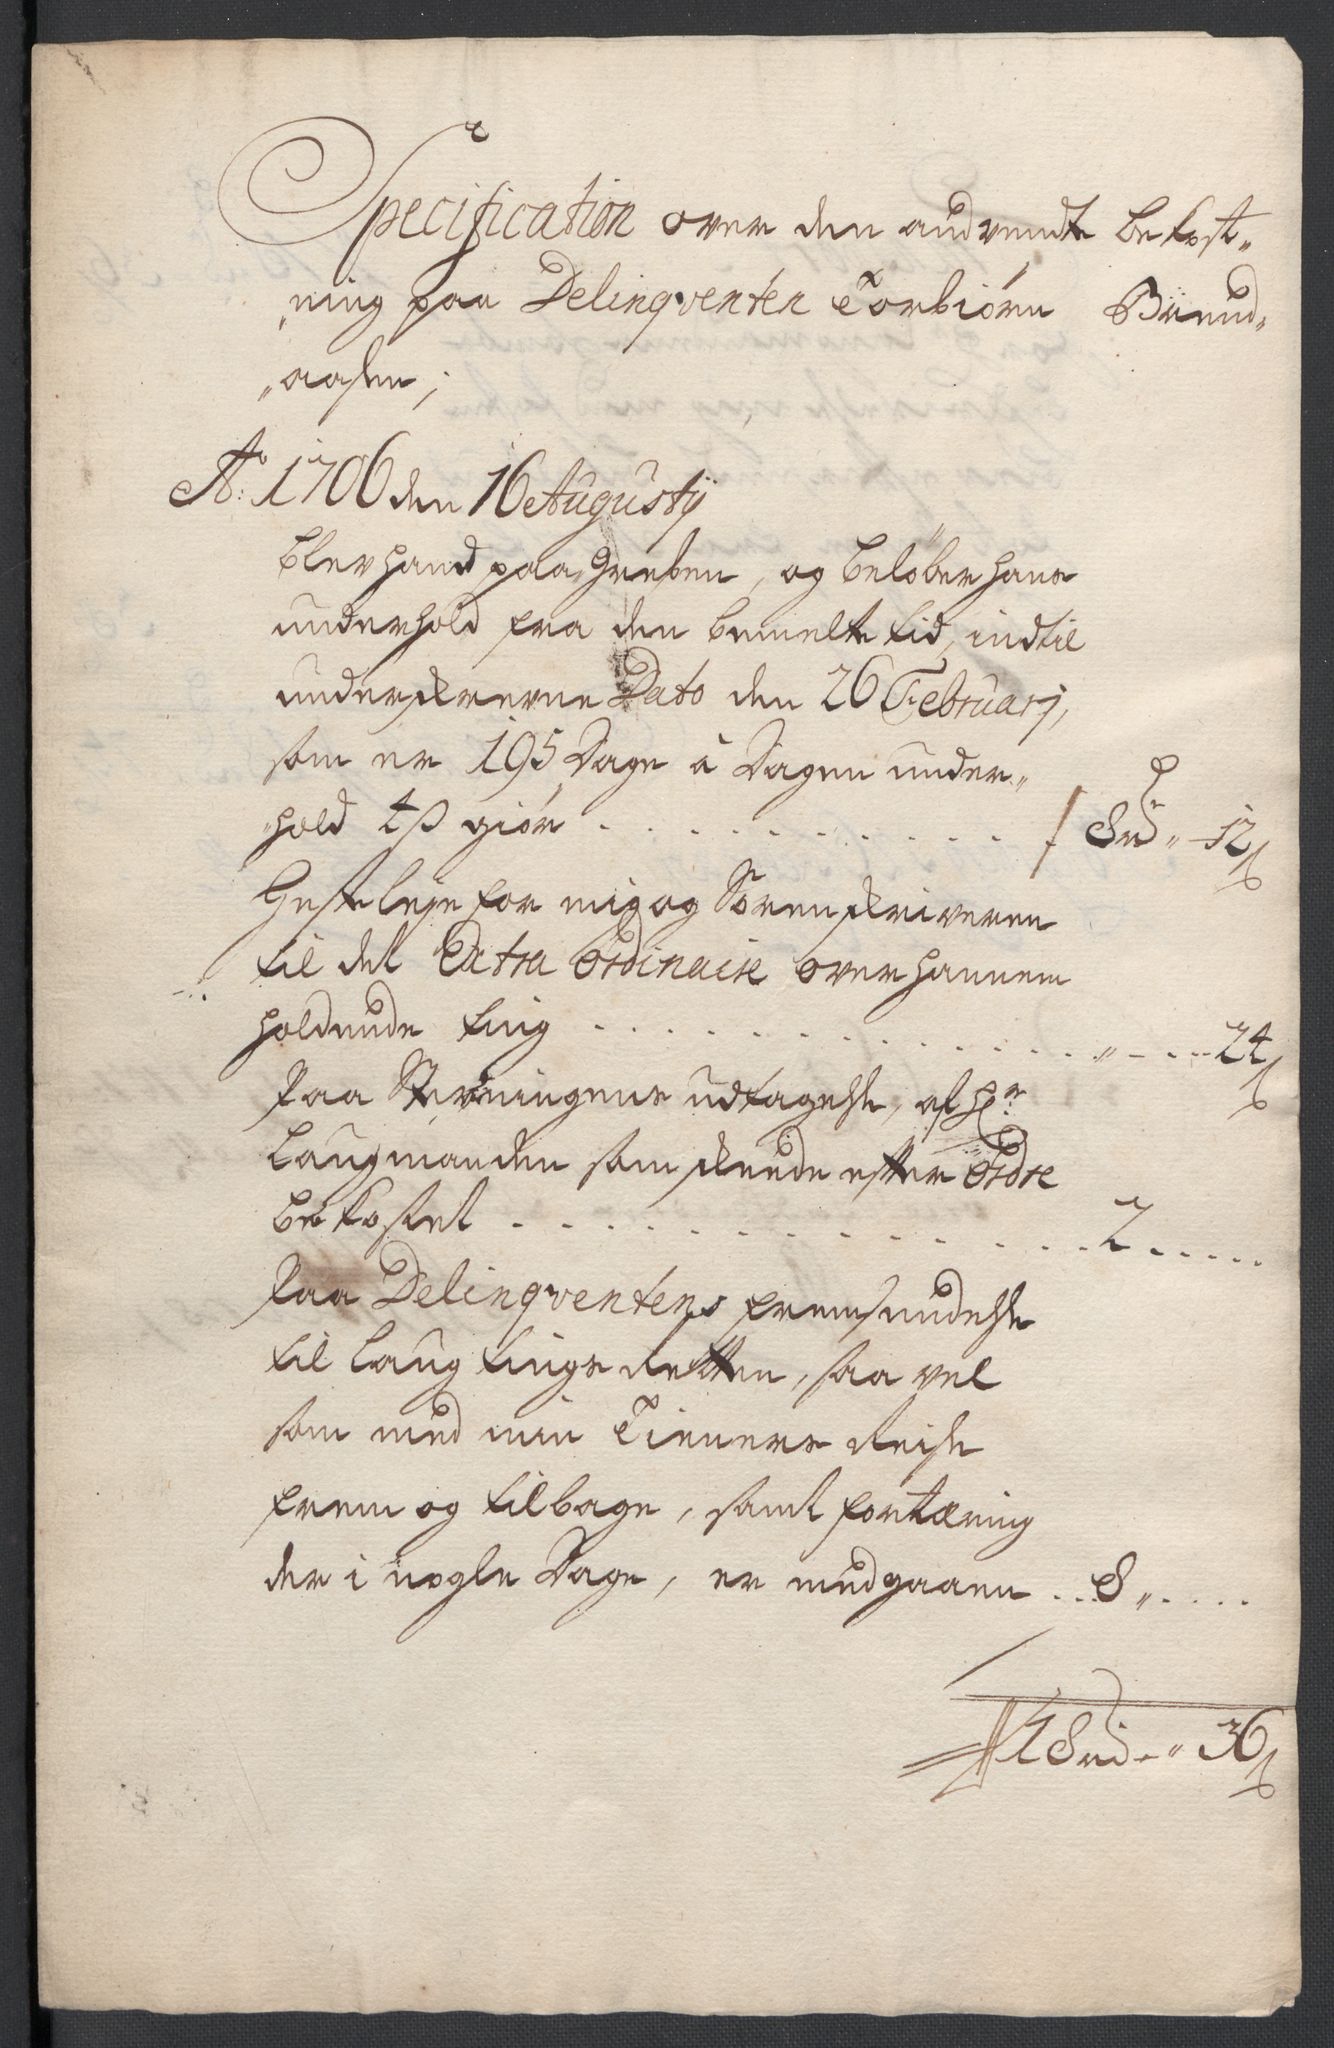 Specification over den anvendte bekost„
„ning paa Delinqventen Torbiörn Brend„
„aasen;
Å: 1706 den 16 Augustij
blev hand paa Greben, og belöber hans
underhold fra den bemelte tid, indtil
underskrevne Dato den 26 Februarj,
som er 195 Dage â Dagen under„
„hold 4 β giör . . . . . . . . . . 8 rd „ – 12 β
Hesteleje for mig og Sorenskriveren
til det Extra Ordinaire over hannem
holdende ting . . . . . . . . . . „ – – – 24 β
Paa Stevningens udtagelse, af Hr:
Laugmanden som skeede efter Ordre
bekostet . . . . . . . . . . 2 . . . . .
Paa Delinqventens fremsendelse
til Laugtings Retten, saa vel
som med min Tieners Reise
frem og tilbage, samt fortæring
der i nogle Dage, er medgaaen . . . 8 „ . . . .
18 rd – „ 36 β